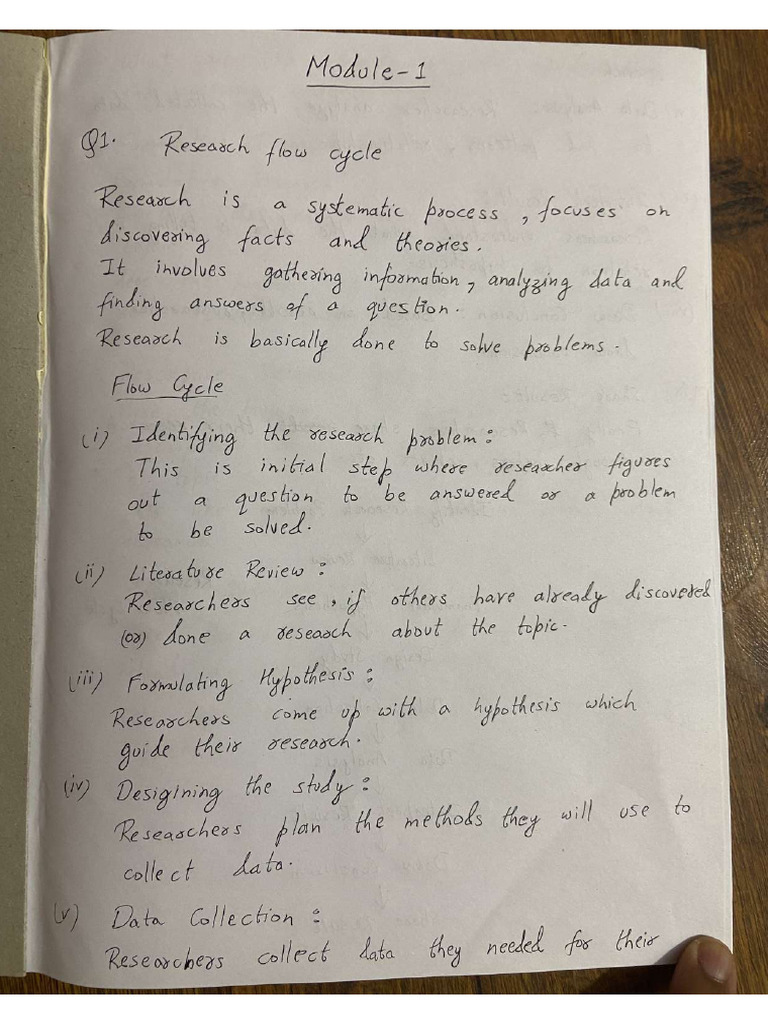 Module-1
Q1. Research flow cycle
Research is a systematic process, focuses on
discovering facts and theories.
It involves gathering information, analyzing data and
finding answers of a question.
Research is basically done to solve problems.
Flow Cycle
(i) Identifying the research problem:
This is initial step where researcher figures
out a question to be answered or a problem
to be solved.
(ii) Literature Review:
Researchers see, if others have already discovered
(or) done a research about the topic.
(iii) Formulating Hypothesis:
Researchers come up with a hypothesis which
guide their research.
(iv) Desigining the study:
Researchers plan the methods they will use to
collect data.
(v) Data Collection:
Researchers collect data they needed for their